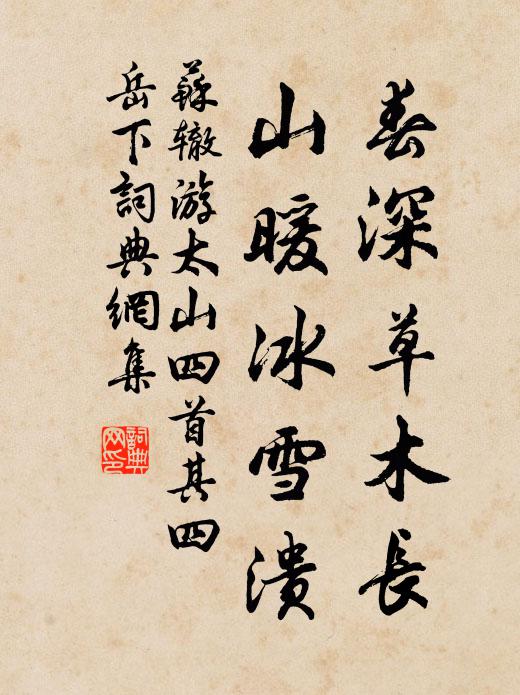 春深草木長
山暖冰雪潰
蘇辙游太山四首其四
岳下詞典網集
詞典
网印